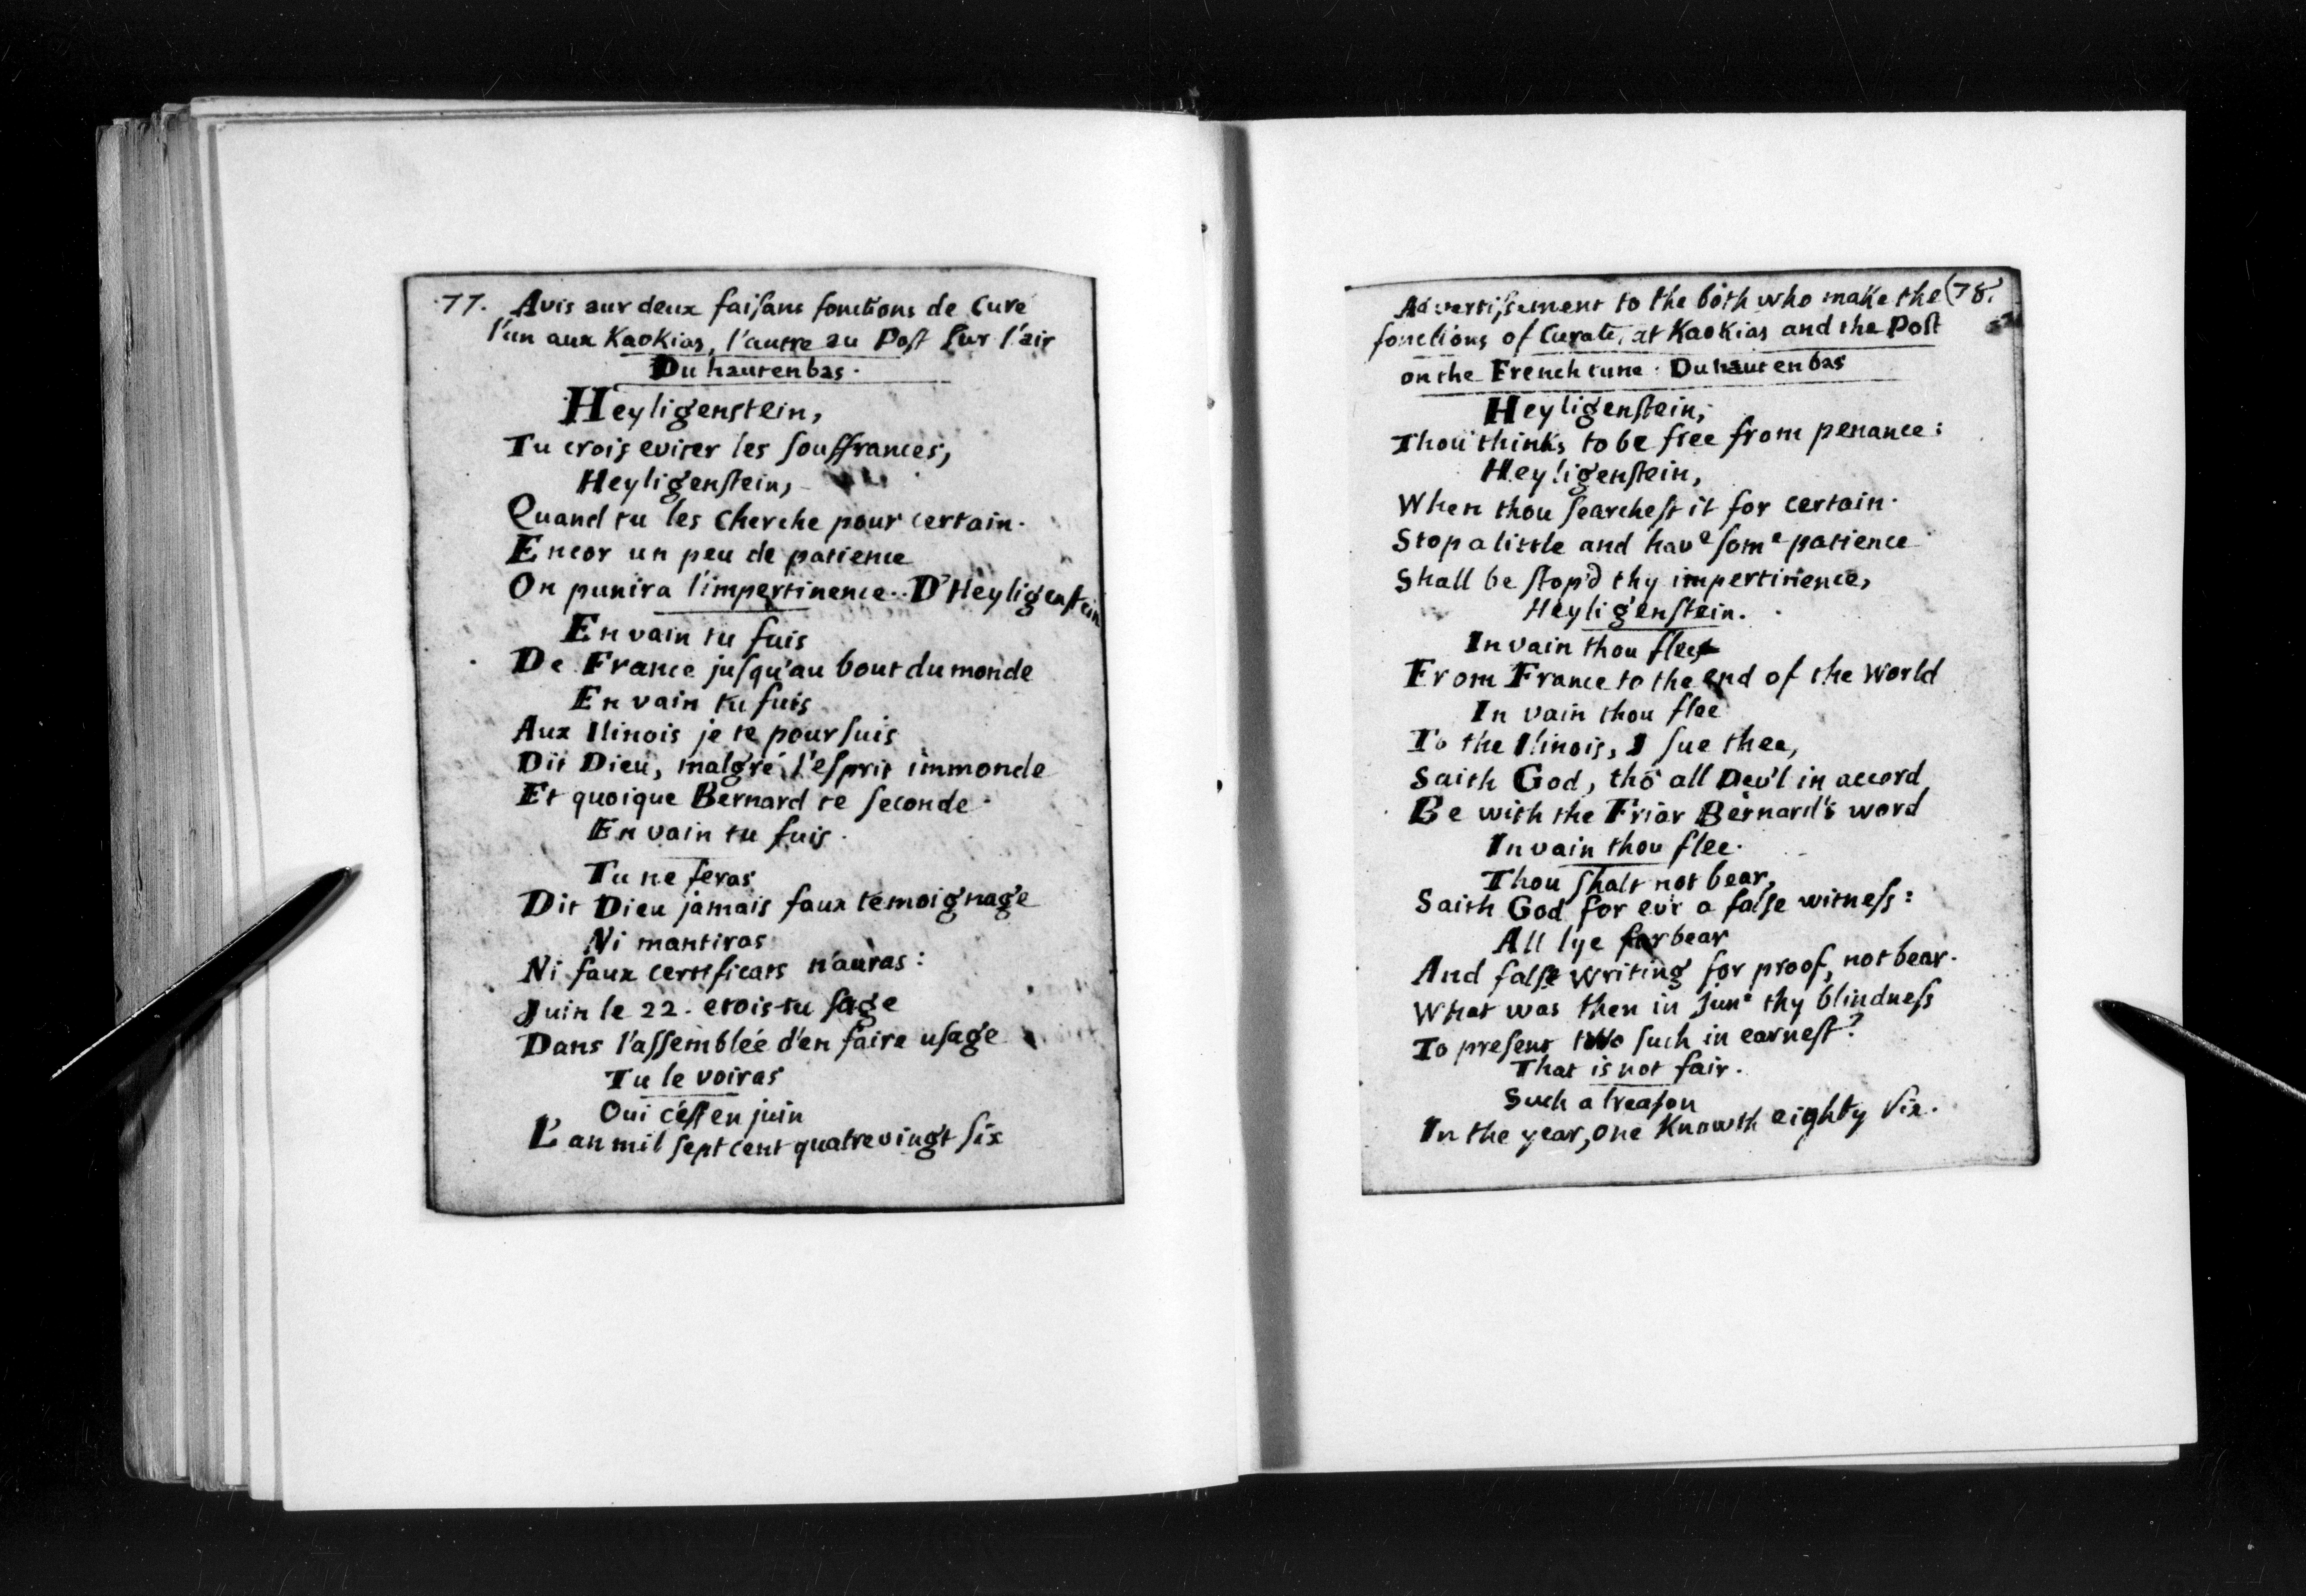 77. Avis aur deux faiſans fonctions de Curé
l'un aux Kaokias, l'autre au Poſt ſur l'air
Du hautenbas.
Heyligenstein,
Tu crois eviter les ſouffrances,
Heyligenſtein,
Quand tu les cherche pour certain.
Encor un peu de patience
On punira l'impertinence.. D'Heyligenſtein
En vain tu fuis
De France juſqu'au bout du monde
En vain tu fuis
Aux Ilinois je te pourſuis
Dit Dieu, malgré l'eſprit immonde
Et quoique Bernard te ſeconde.
En vain tu fuis.
Tu ne feras
Dit Dieu jamais faux temoignage
Ni mantiras
Ni faux certificats n'auras:
Juin le 22. etois-tu ſage
Dans l'aſſemblée d'en faire uſage
Tu le voiras
Oui c'éſt en juin
L'an mil ſept cent quatrevingt ſix
Advertiſement to the both who make the (78.
fonctions of Curate, at Kaokias and the Poſt
on the French tune. Du haut en bas
Heyligenſtein,
Thou thinks to be free from penance:
Heyligenſtein,
When thou ſearcheſt it for certain.
Stop a little and have ſome patience
Shall be ſtop'd thy impertinence,
Heyligenſtein.
In vain thou flee
From France to the end of the World
In vain thou flee
To the Ilinois, I ſue thee,
Saith God, thō all Dev'l in accord
Be with the Friar Bernard's word
In vain thou flee.
Thou ſhalt not bear,
Saith God for ev'r a falſe witneſs:
All lye forbear
And falſe writing for proof, not bear.
What was then in June thy blindneſs
To preſent two ſuch in earneſt?
That is not fair.
Such a treaſon
In the year, one Knowth eighty Six.